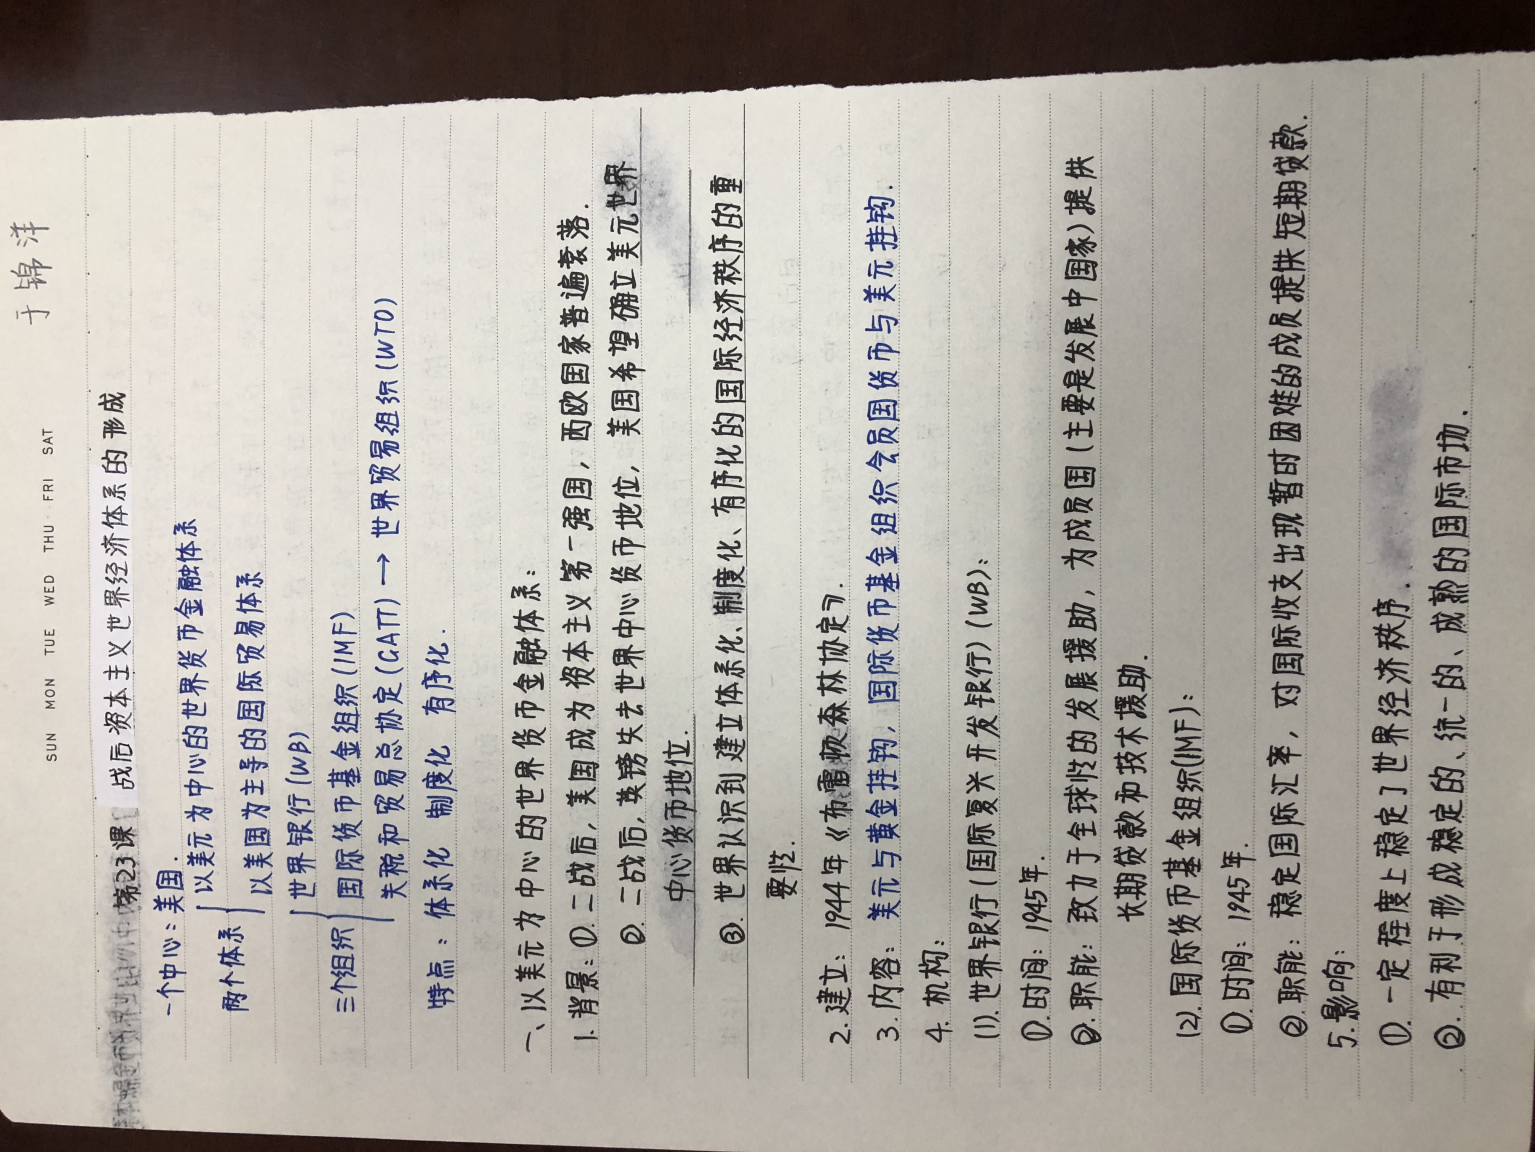 于锦洋
SUN MON TUE WED THU FRI SAT
第23课 战后资本主义世界经济体系的形成
一个中心：美国.
两个体系 以美元为中心的世界货币金融体系
以美国为主导的国际贸易体系
世界银行(WB)
三个组织 国际货币基金组织(IMF)
关税和贸易总协定(GATT) → 世界贸易组织(WTO)
特点：体系化 制度化 有序化.
一、以美元为中心的世界货币金融体系：
1. 背景：①. 二战后, 美国成为资本主义第一强国, 西欧国家普遍衰落.
②. 二战后, 英镑失去世界中心货币地位, 美国希望确立美元世界
中心货币地位.
③. 世界认识到建立体系化、制度化、有序化的国际经济秩序的重
要性.
2. 建立：1944年《布雷顿森林协定》.
3. 内容：美元与黄金挂钩, 国际货币基金组织会员国货币与美元挂钩.
4. 机构：
(1). 世界银行(国际复兴开发银行)(WB)：
①. 时间：1945年.
②. 职能：致力于全球性的发展援助, 为成员国(主要是发展中国家)提供
长期贷款和技术援助.
(2). 国际货币基金组织(IMF)：
①. 时间：1945年.
②. 职能：稳定国际汇率, 对国际收支出现暂时困难的成员提供短期贷款.
5. 影响：
①. 一定程度上稳定了世界经济秩序.
②. 有利于形成稳定的、统一的、成熟的国际市场.